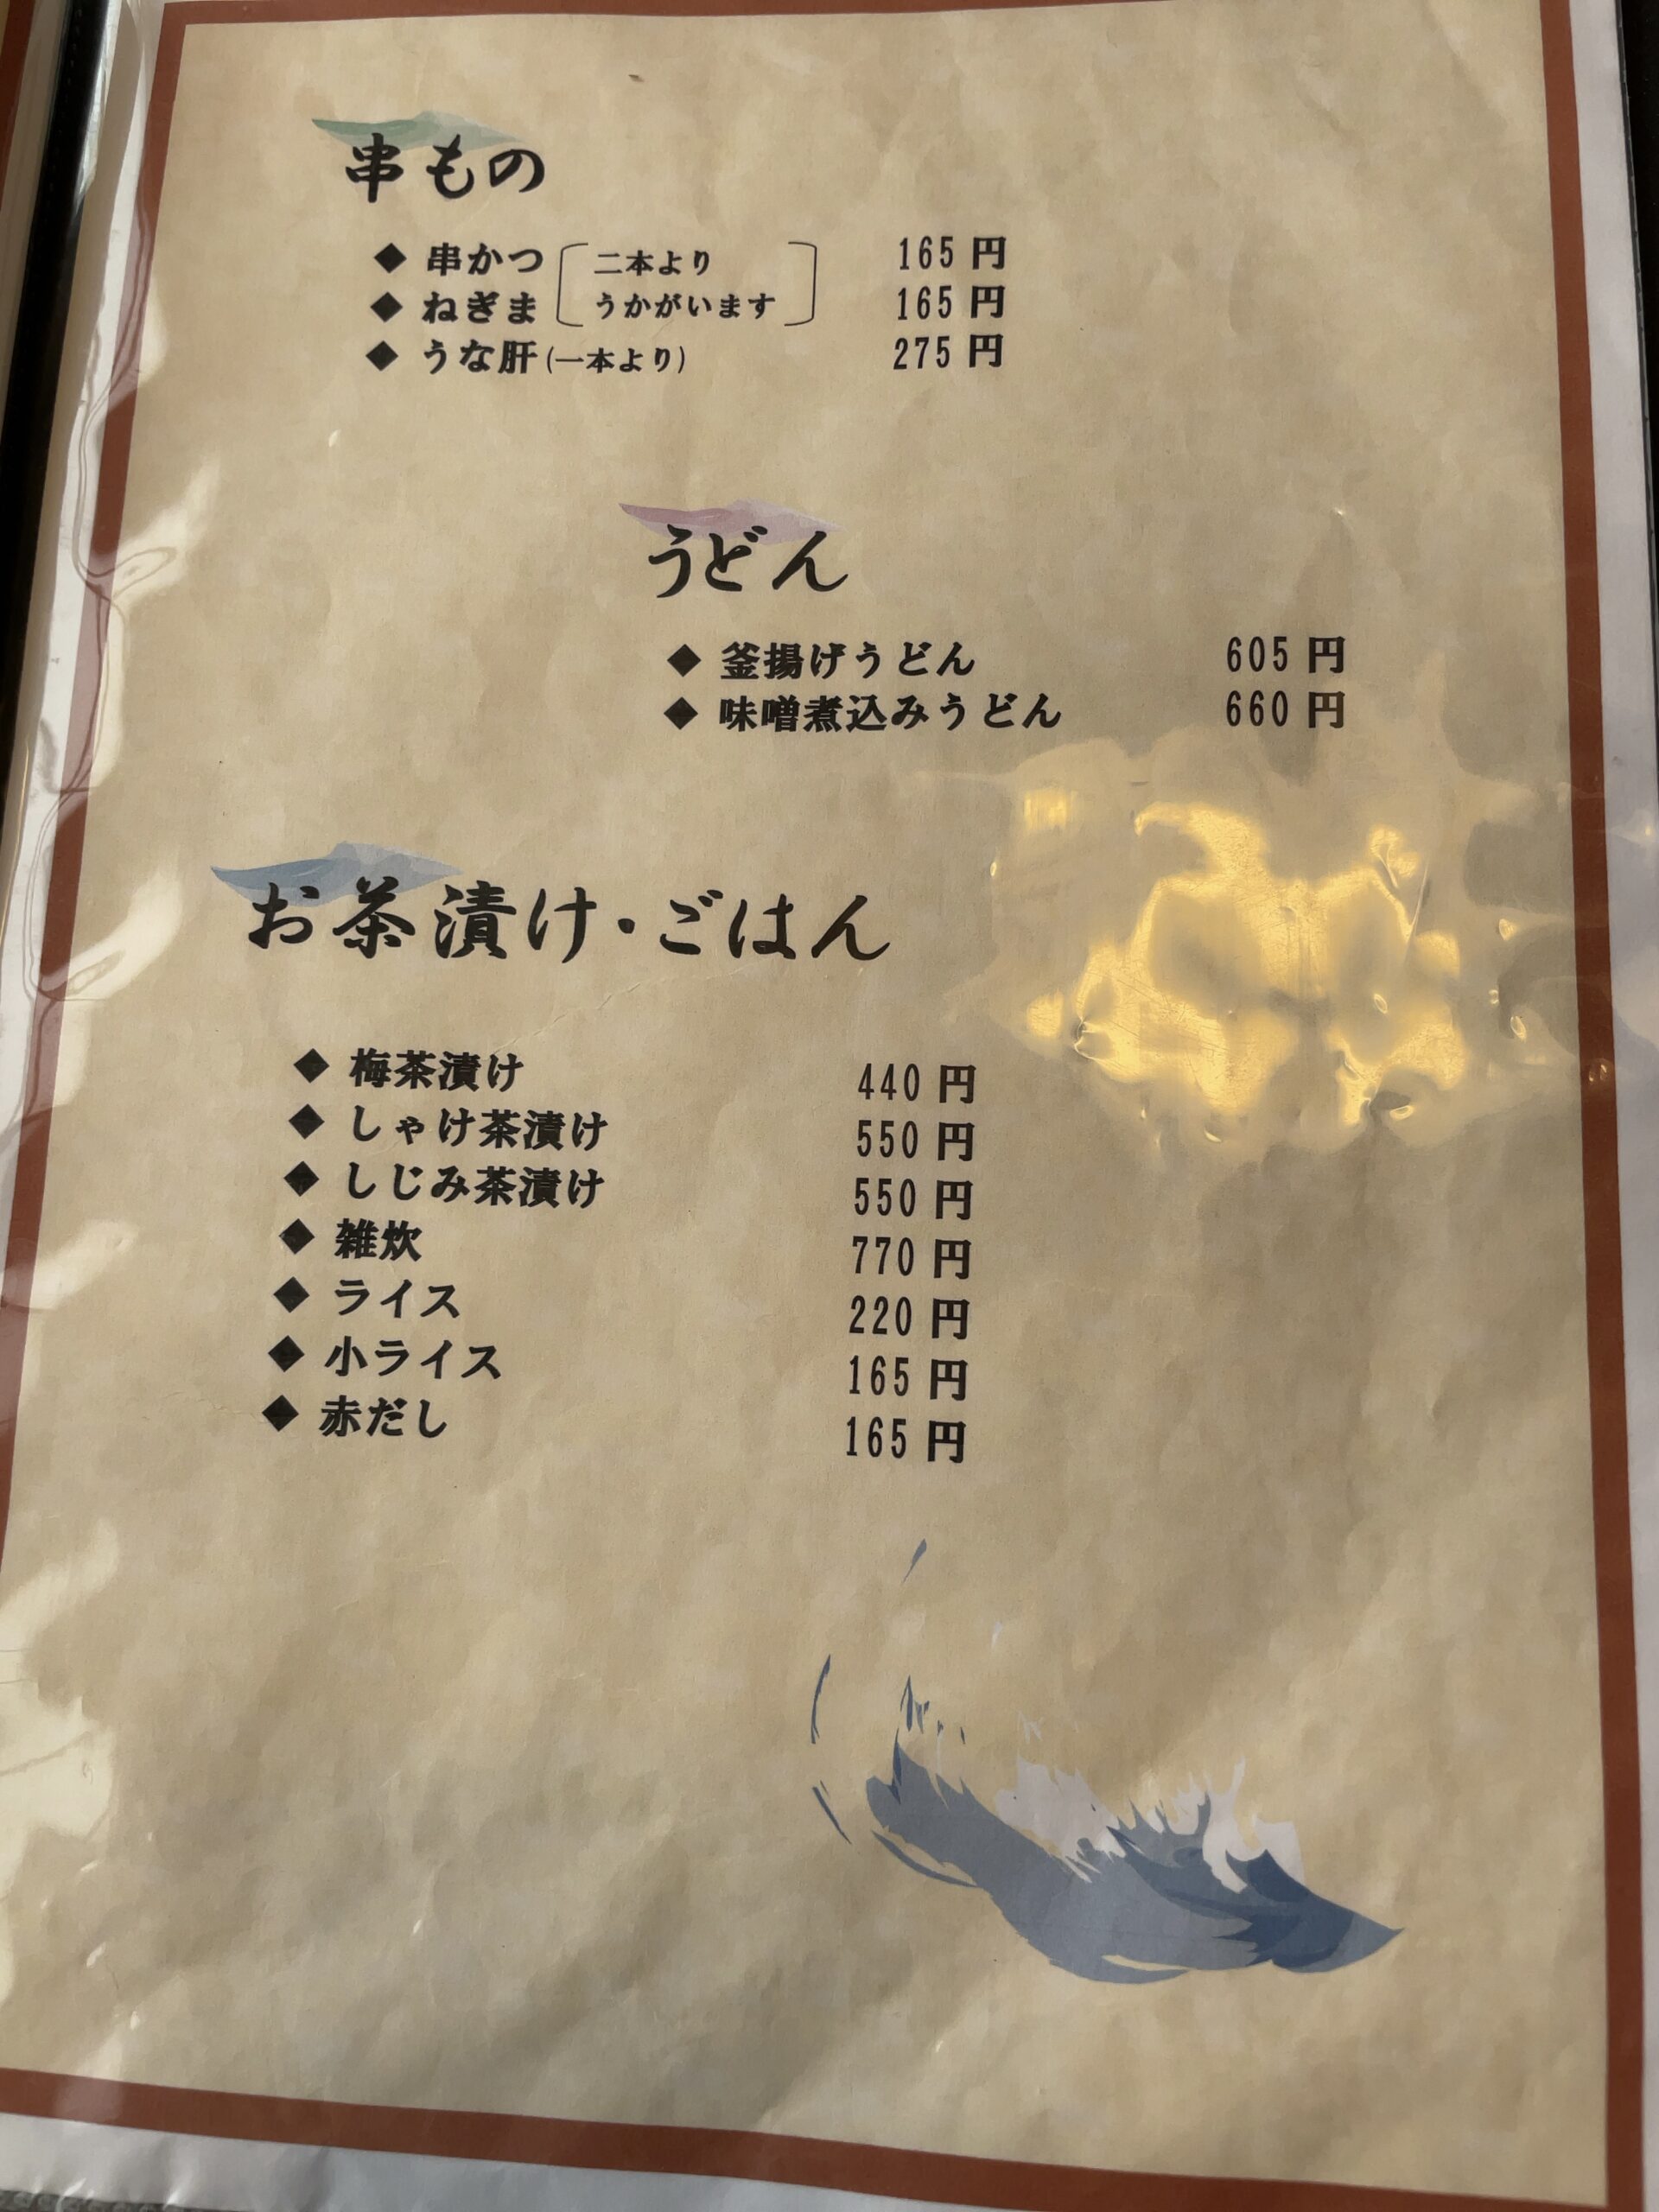 串もの
◆ 串かつ 二本より 165 円
◆ ねぎま うかがいます 165 円
◆ うな肝(一本より) 275 円
うどん
◆ 釜揚げうどん 605 円
◆ 味噌煮込みうどん 660 円
お茶漬け・ごはん
◆ 梅茶漬け 440 円
◆ しゃけ茶漬け 550 円
◆ しじみ茶漬け 550 円
◆ 雑炊 770 円
◆ ライス 220 円
◆ 小ライス 165 円
◆ 赤だし 165 円